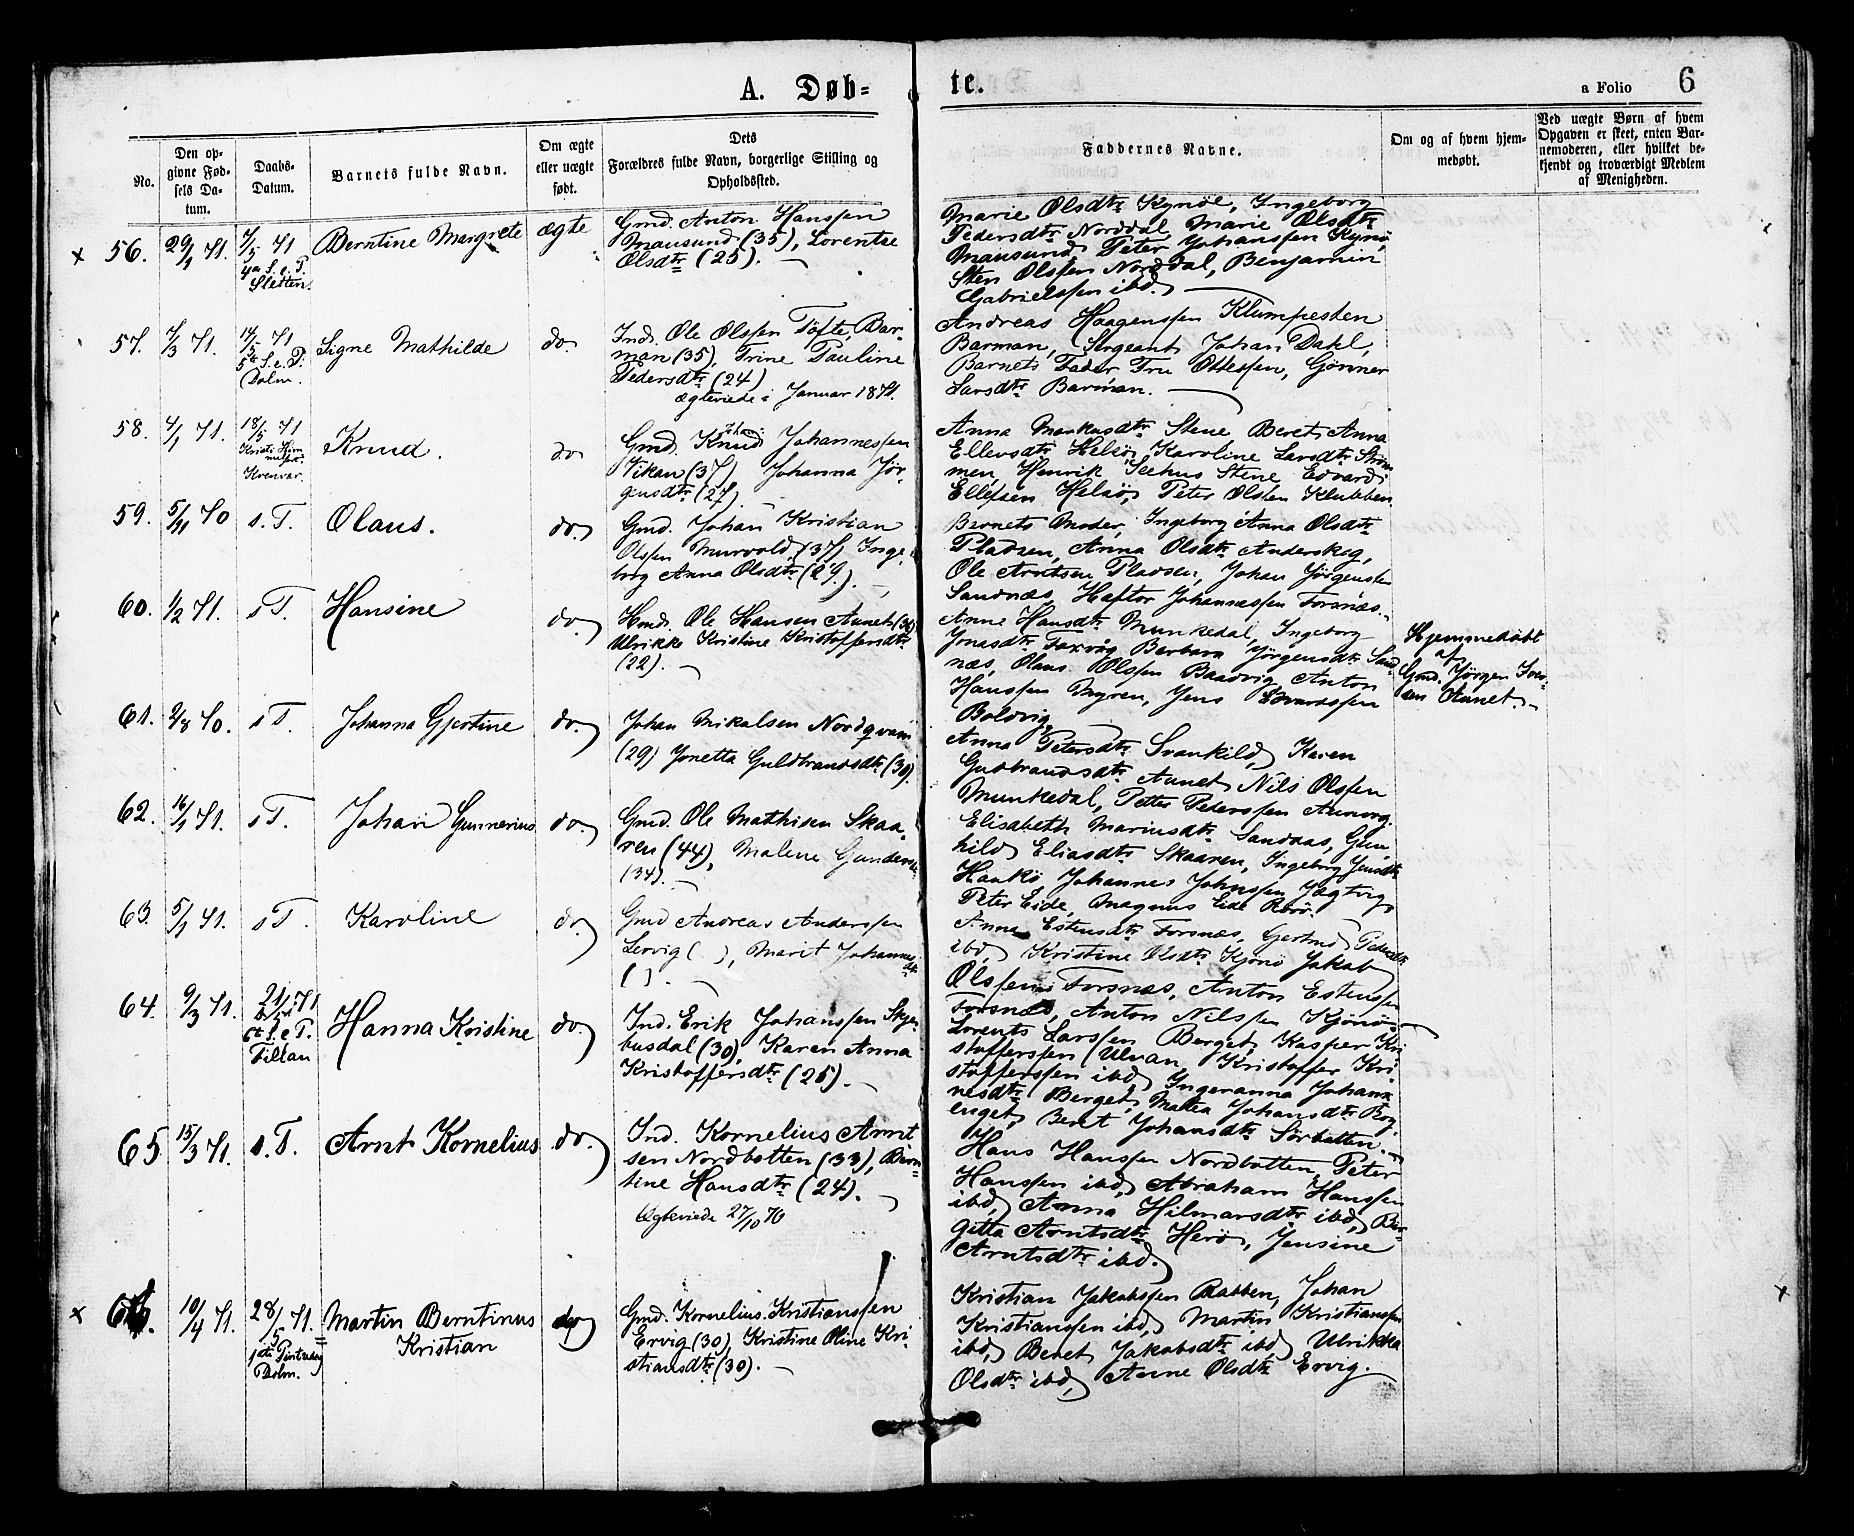 A. Døb=
te.
a Folio 6
No.
Den op-
givne Fød-
sels Da-
tum.
Daabs-
Datum.
Barnets fulde Navn.
Om ægte
eller uægte
født.
Dets
Forældres fulde Navn, borgerlige Stilling og
Opholdssted.
Faddernes Navne.
Om og af hvem hjem-
medøbt.
Ved uægte Børn af hvem
Opgaven er skeet, enten Bar-
nemoderen, eller hvilket be-
kjendt og troværdigt Medlem
af Menigheden.
x 56. 29/1 71.
7/5 71
4de S. e. P.
Sletten.
Berntine Margrete
ægte
Gmd. Anton Hanssen
Mausund (35), Lorentze
Olsdtr (25).
Marie Olsdtr Kynöl, Ingeborg
Pedersdtr Norddal, Marie Olsdtr
Mausund, Peter Johanssen Kynö
Sten Olssen Norddal, Benjamin
Gabrielssen ibd.
57. 7/3 71.
14/5 71
5te S. e. P.
Dolm.
Signe Mathilde
do.
Ind. Ole Olssen Töfte, Bar-
man (35), Trine Pauline
Pedersdtr (24)
ægteviede i Januar 1871.
Andreas Haagenssen Klumpesten
Barman, Sergeant Johan Dahl,
Barnets Fader Fru Ottessen, Gönner
Larsdtr Barman.
58. 4/1 71.
18/5 71
Kristi Him-
melfart.
Kvenvær
Knud.
do
Gmd. Knud Johannessen
Vikan (37) Johanna Jör-
gensdtr (27).
Anna Markusdtr Stene Beret Anna
Ellevsdtr Helsö, Karoline Larsdtr Ström
men, Henrik Seehus Stene, Edvard
Ellefsen Helsö, Peter Olsen Klubben.
59. 5/11 70
s. T.
Olaus.
do.
Gmd. Johan Kristian
Olssen Murvold, (37) Inge-
borg Anna Olsdtr (29).
Barnets Moder, Ingeborg Anna Olsdtr
Pladsen, Anna Olsdtr Anderskog,
Ole Arntsen Pladsen, Johan Jörgensen
Sandnæs, Haftor Johannessen Forsnæs.
60. 1/2 71.
s T.
Hansine
do.
Hmd. Ole Hansen Aunet (30)
Ulrikke Kristine Kristoffersdtr
(22).
Anne Hansdtr Munkedal, Ingeborg
Jensdtr Faxvåg Barbara Jörgensdtr Sand-
næs, Olaus Olssen Baadvig, Anton
Hanssen Myren, Jens Edvardssen
Boldvig
Hjemmedöbt
af
Gmd. Jörgen Iver-
sen Aunet.
61. 2/8 70.
s T.
Johanna Gjertine
do.
Johan Mikalsen Nordqvam
(29) Jonetta Guldbrandsdtr (30).
Anna Petersdtr Svankild, Karen
Gulbrandsdtr Aunet, Nils Olssen
Munkedal, Petter Pederssen Aunvg.
62. 16/1 71.
s T.
Johan Gunnerius
do.
Gmd. Ole Mathisen Skaa-
ren (44), Malene Gunders
(34).
Elisabeth Mariusdtr Sandaas, Gun
hild Eliasdtr Skaaren, Ingeborg Jensdtr
Hankö Johannes Johnssen Jægtvig,
Peter Eide, Magnus Eide
63. 5/1 71.
s T.
Karoline
do.
Gmd Andreas Anderssen
Lervig ( ), Marit Johannes
dtr
( ).
Anna Estensdtr Forsnæs, Gertrud Pedersdtr
ibd, Kristine Olsdtr Kjönö Jakob
Olssen Forsnæs, Anton Estenssen
Forsnæs, Anton Nilssen Kjönö
64. 9/3 71.
21/5 71
6te S. e. P.
Fillan
Hanna Kristine
do.
Ind. Erik Johanssen Skje-
busdal (30), Karen Anna
Kristoffersdtr (25).
Lorents Larssen Berget, Kasper Kri-
stofferssen Ulvan Kristoffer Kri-
stofferssen ibd, Ingeranna Johann
nesdtr Berget, Malea Johansdtr Bog-
enget, Beret Johansdtr Sörbotten.
65 15/3 71.
s. T.
Arnt Kornelius
do.
Ind. Kornelius Arnt
sen Nordbotten (33), Bern-
tine Hansdtr (24).
Ægteviede 27/10 70
Hans Hanssen Nordbotten, Peter
Hanssen ibd, Abraham Hanssen
ibd, Anna Hilmarsdtr ibd, Ber-
gitta Arntsdtr Herö, Jensine
Arntsdtr ibd.
x 66. 10/4 71.
28/5 71.
1ste Pintsedag
Dolm.
Martin Berntinus
Kristian
do
Gmd. Kornelius Kristianssen
Ervig (30), Kristine Oline Kri
stiansdtr (30).
Kristian Jakobssen Rabben, Johan
Kristianssen ibd, Martin Kristianssen
ibd, Beret Jakobsdtr ibd, Ulrikka
Olsdtr ibd, Anne Olsdtr Ervig.
x